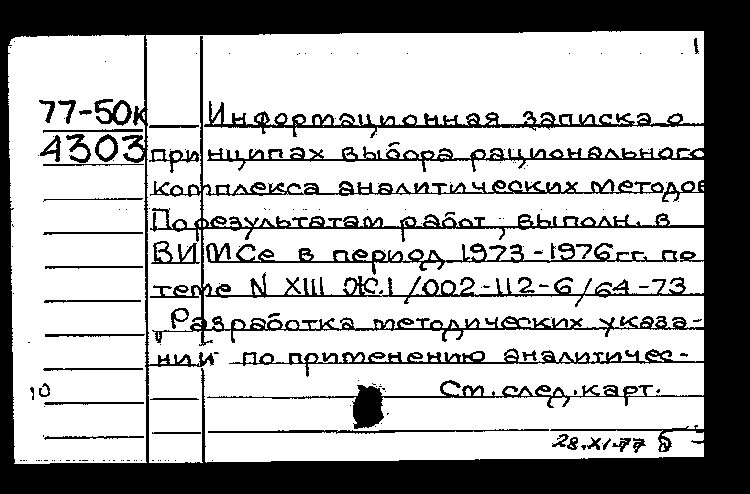 1
77-50к Информационная записка о
4303 принципах выбора рационального
комплекса аналитических методов
По результатам работ, выполн. в
ВИМСе в период 1973-1976гг. по
теме N XIII Ж.1/002-112-6/64-73
„Разработка методических указа-
ний по применению аналитичес-
10 См. след. карт.
28.XI.77